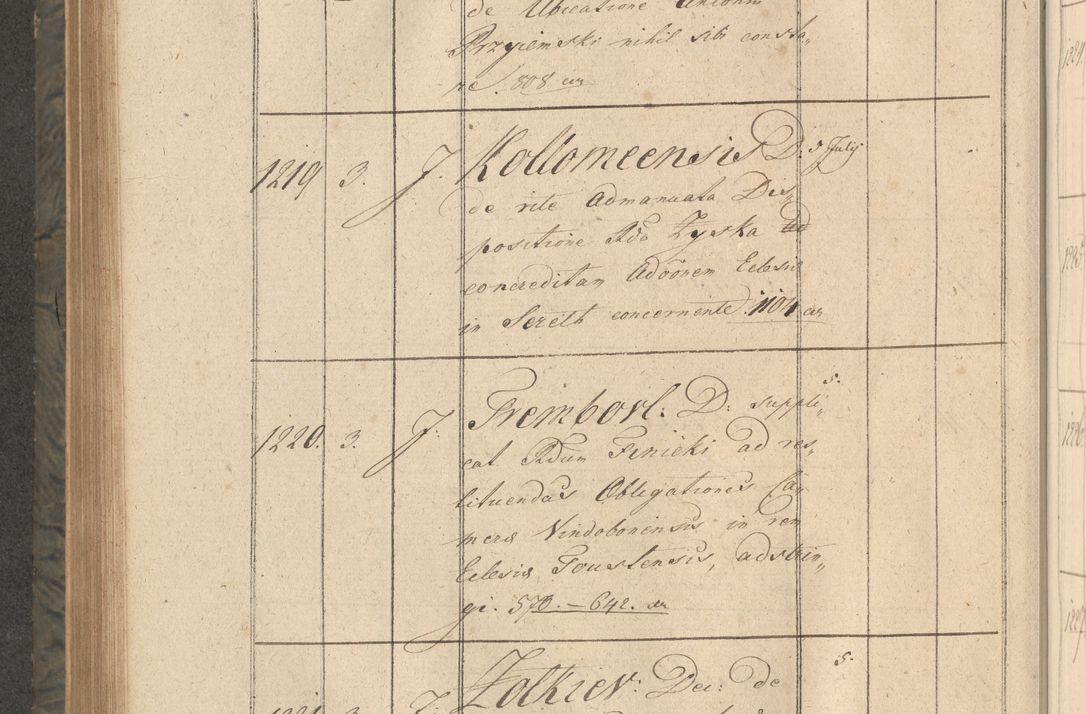 de Ubicatione Antonii
Przyiemski nihil sibi consta„
re. 808 ar
1219 3. J. Kollomeensis D: 3 July
de rite admanuata Dis„
positione Rdo Zyska ad
concreditam Adõõnem Eclesiæ
in Sereth concernente. 1104 ar
5.
1220. 3. J. Trembovl: D: suppli„
cat Rdum Finicki ad res„
tituendas Obligationes Ca„
meræ Vindobonensis in rem
Eclesiæ Toustensis, adstrin„
gi. 570. – 642. ar
5.
1221 3. J. Zolkiev: Dec: de